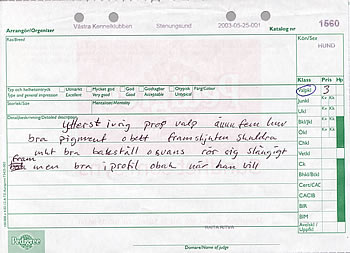 Arrangör/Organizer
Västra Kennelklubben Stenungsund 2003-05-25-001
Katalog nr 1560
Ras/Breed
Kön/Sex
HUND
Typ och helhetsintryck
Type and general impression
Utmärkt Excellent
Mycket god Very good
God Good
Godtagbar Acceptable
Otypisk Untypical
Färg/Colour
Klass Pris Hp
Valpkl 3
Junkl
Storlek/Size
Mentalitet/Mentality
Ukl
Detaljbeskrivning/Detailed description
ytterst ivrig prop valp ännu fem huv
bra pigment o bett framskjuten skuldra
mkt bra bakställ o svans rör sig slängigt
fram men bra i profil o bak när han vill
Bkl/Jkl
Ökl
Chkl
Vetkl
Ck
Bhkl/Btkl
Cert/CAC
CACIB
BIR
BIM
Avelskl/Uppfkl
RITA RITVA
Pedigree
Domare/Name of judge